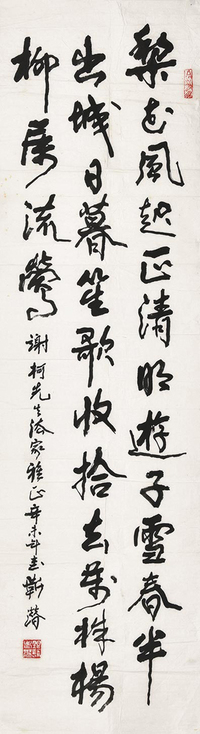 梨花風起正清明遊子尋春半
出城日暮笙歌收拾去萬株楊
柳屬流鶯
謝柯先生法家雅正辛未年書